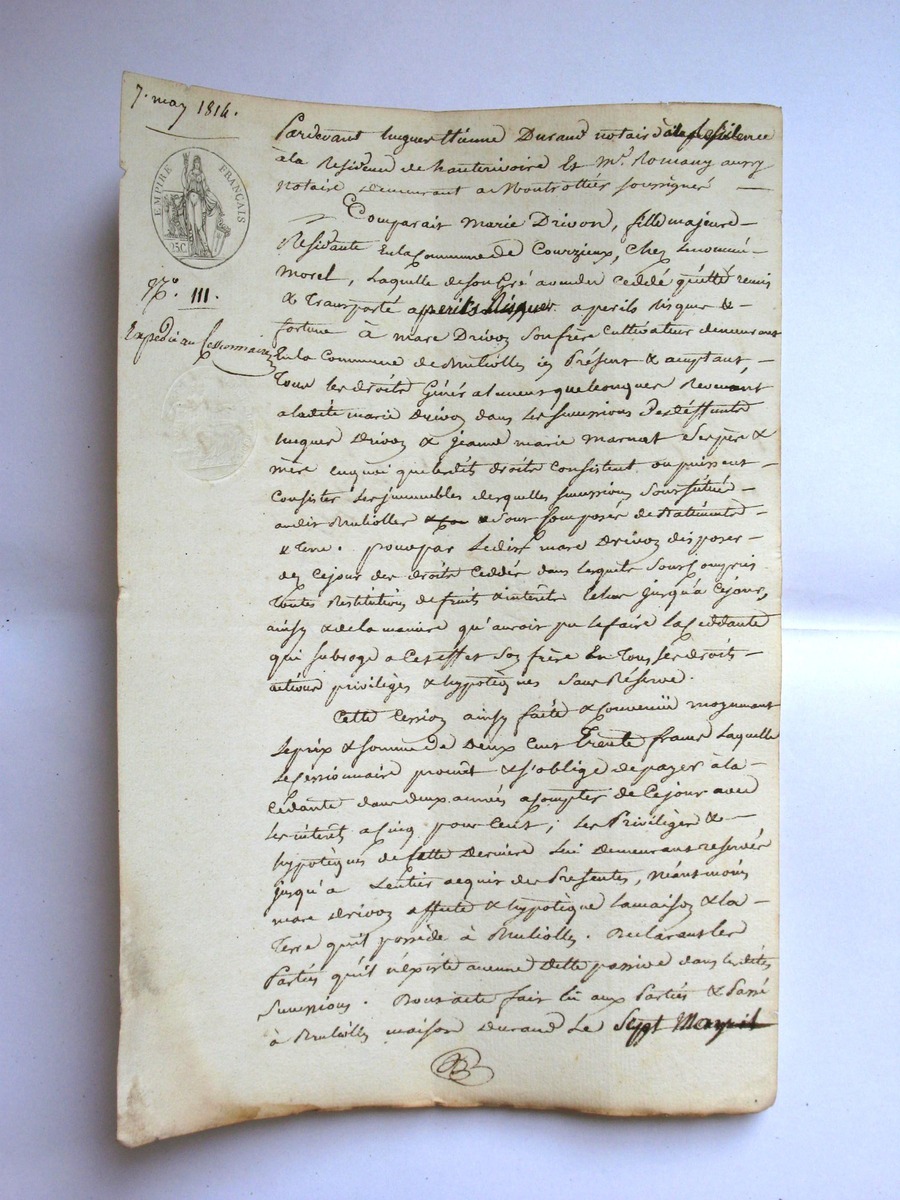 7. may 1814.
EMPIRE FRANÇAIS
25C
N.o 111.
Expedié au Cessionnaire
Pardevant hugues Etienne Durand notaire
à la Residence de hauterivoire Et M.e Romany aussy
notaire demeurant a Montrottier soussignés
Comparait Marie Drivon, fille majeure
Residante En la Commune de Courzieux, chez le nommé
Morel, Laquelle de son Gré a vendu Ceddé quitté remis
& Transporté a perils Risques a perils Risques &
fortune à marc Drivoz son frère Cultivateur demeurant
En la Commune de Brulliolles icy Présent & acceptant,
Tous les droits Généralement quelconques Revenant
a ladite marie Drivoz dans les successions des déffunts
hugues Drivoz & jeanne marie Marnat ses père &
mère En quoi que lesdits droits Consistent ou puissent
Consister Les jmmeubles desquelles successions sont situés
audit Brulioles & sont Composés de Batiments
& Terre. pour par Ledit marc Drivoz disposer
dez Cejour des droits Ceddés dans lesquels sont Compris
Toutes Restitutions de fruits & interets Echus jusqu'à Cejour,
ainsy & de la maniere qu'auroit pu le faire la Ceddante
qui subroge a Cet effet Son frère En Tous ses droits
actions priviléges & hypotèques Sans Réserve.
Cette Cession ainsy faite & Convenüe moyennant
Le prix & somme de Deux Cent Trente francs Laquelle
Le Cessionnaire promêt & s'oblige de payer à la
Cédante dans deux années a Compter de Cejour avec
Les interet a Cinq pour Cent; Les Priviléges &
hypotèques de Cette Derniere Lui Demeurant reservés
jusqu'à Lentier acquit des Presentes, néantmoins
marc Drivoz affecte & hypotèque La maison & la
Terre qu'il possède à Brulioles. Declarant les
Parties qu'il n'éxiste aucune dette passive dans lesdites
Successions. Dont acte fait lû aux Parties & Passé
à Brulioles maison Durand Le Sept May